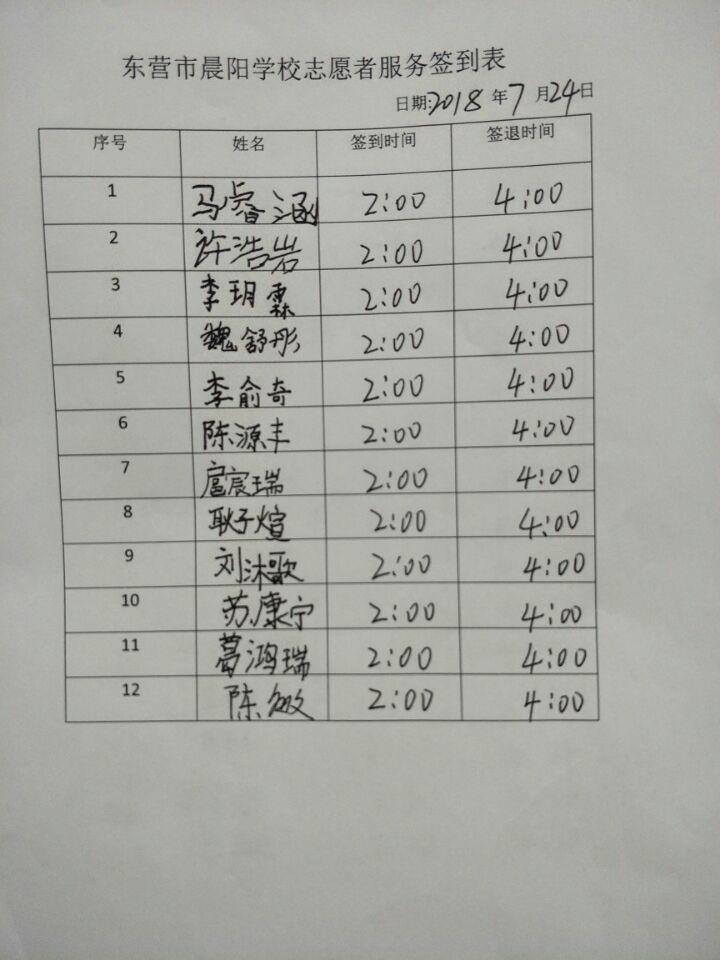 东营市晨阳学校志愿者服务签到表
日期:2018年7月24日
序号 姓名 签到时间 签退时间
1 马睿涵 2:00 4:00
2 许浩岩 2:00 4:00
3 李玥霖 2:00 4:00
4 魏舒彤 2:00 4:00
5 李俞奇 2:00 4:00
6 陈源丰 2:00 4:00
7 扈宸瑞 2:00 4:00
8 耿子煊 2:00 4:00
9 刘沐歌 2:00 4:00
10 苏康宁 2:00 4:00
11 葛鸿瑞 2:00 4:00
12 陈敏 2:00 4:00